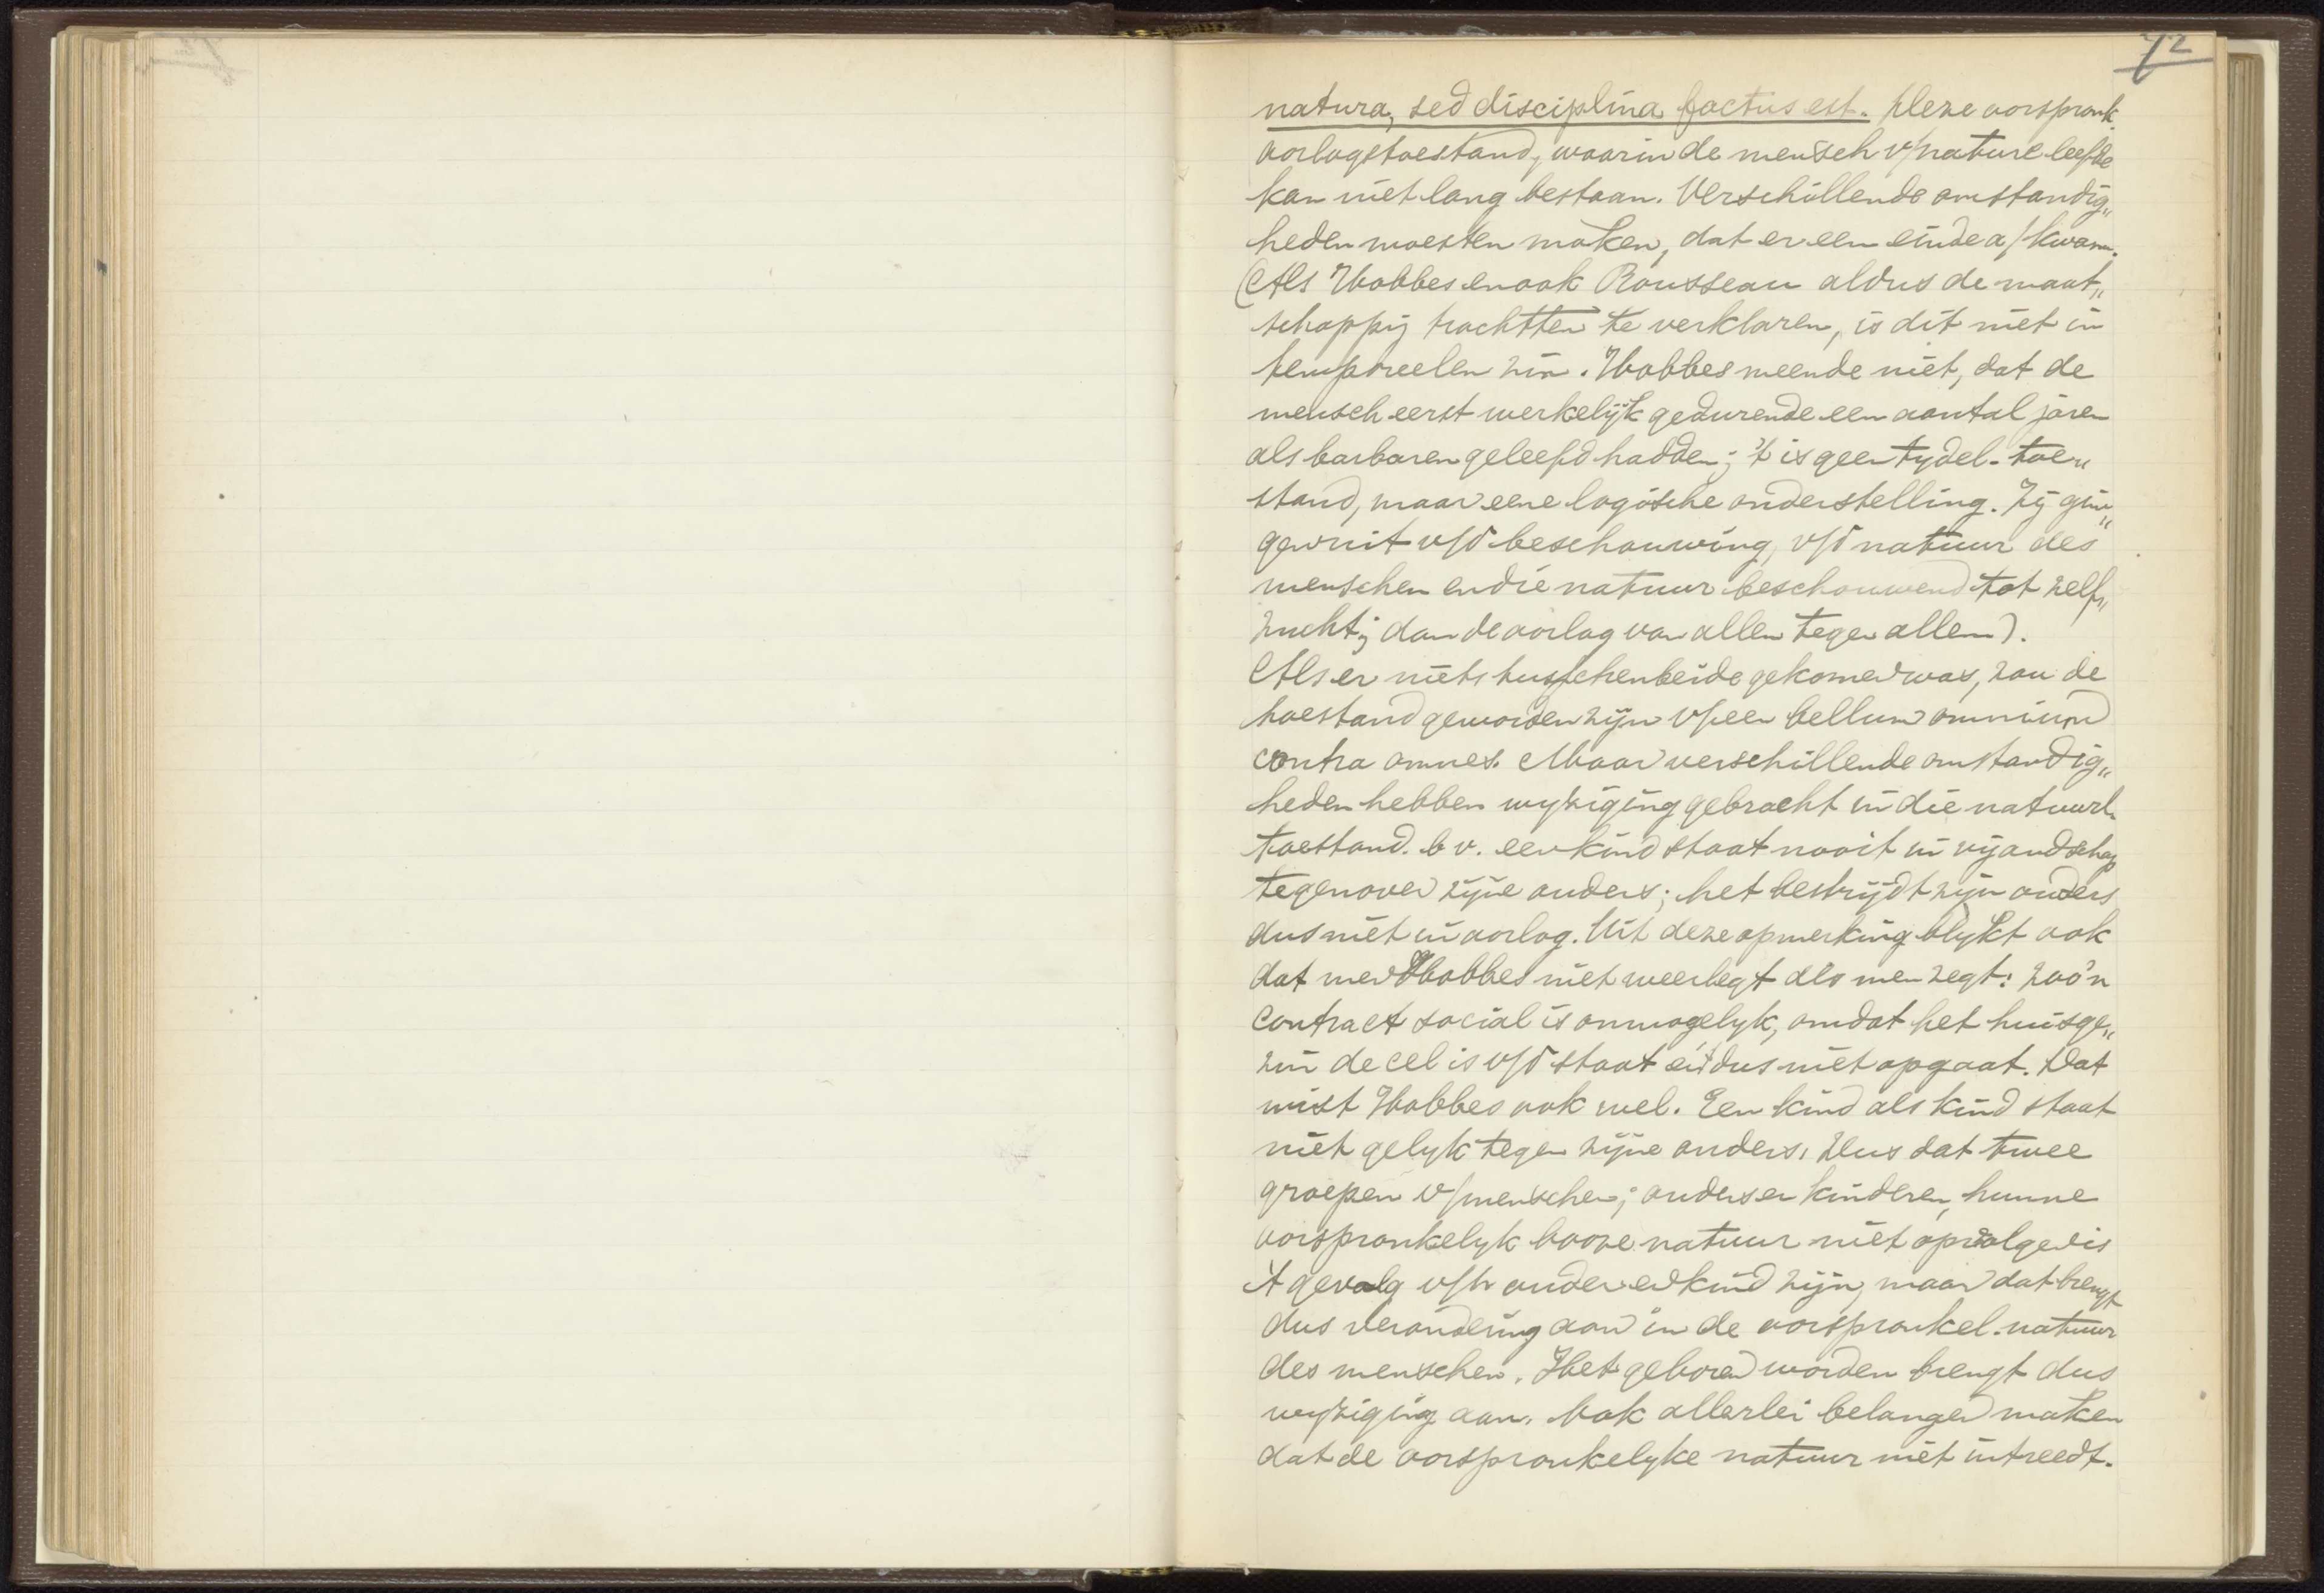 72
natura, sed disciplina factus est. Deze oorspronk.
oorlogstoestand, waarin de mensch v/nature leefde
kan niet lang bestaan. Verschillende omstandig„
heden moesten maken, dat er een einde a/ kwam.
(Als Hobbes en ook Rousseau aldus de maat„
schappij trachtten te verklaren, is dit niet in
temporeelen zin. Hobbes meende niet, dat de
mensch eerst werkelijk gedurende een aantal jaren
als barbaren geleefd hadden; 't is geen tydel. toe„
stand, maar eene logische onderstelling. Zij gin„
gen uit v/d beschouwing, v/d natuur des
menschen en die natuur beschouwend tot zelf„
zucht; dan de oorlog van allen tegen allen).
Als er niets tusschenbeide gekomen was, zou de
toestand geworden zijn v/een bellum omnium
contra omnes. Maar verschillende omstandig„
heden hebben wyziging gebracht in die natuurl.
toestand. b v. een kind staat nooit in vijandschap
tegenover zijne ouders; het bestrijdt zijn ouders
dus niet in oorlog. Uit deze opmerking blykt ook
dat men Hobbes niet weerlegt als men zegt: zoo'n
contract social is onmogelyk, omdat het huisge„
zin de cel is v/d staat en 't dus niet opgaat. Dat
wist Hobbes ook wel. Een kind als kind staat
niet gelyk tegen zijne ouders. Dus dat twee
groepen v/menschen; ouders en kinderen, hunne
oorspronkelyk booze natuur niet opvolgen is
't gevolg v/h ouder en kind zijn, maar dat brengt
dus verandering aan in de oorspronkel. natuur
des menschen. Het geboren worden brengt dus
wyziging aan. Ook allerlei belangen maken
dat de oorspronkelyke natuur niet intreedt.